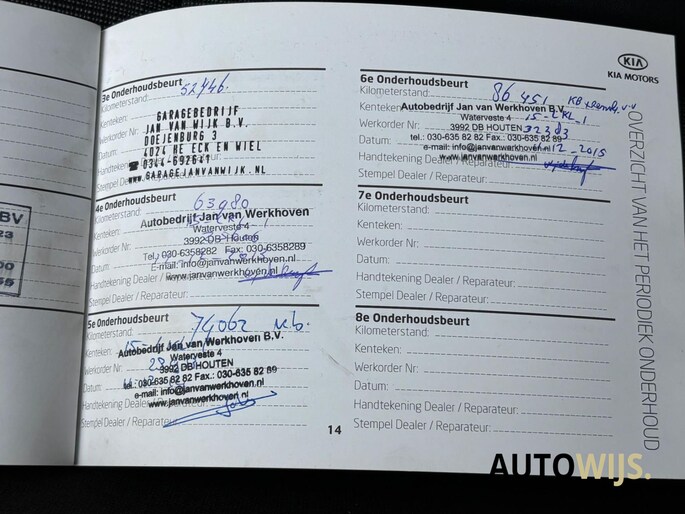 3e Onderhoudsbeurt
Kilometerstand: 52446.
Kenteken:
GARAGEBEDRIJF
Werkorder Nr:
JAN VAN WIJK B.V.
DOEJENBURG 3
Datum:
4024 HE ECK EN WIEL
Handtekening
☎ 0344-692641
Stempel Dealer / Reparateur:
www.GARAGEJANVANWIJK.NL
4e Onderhoudsbeurt
Kilometerstand: 63980
Autobedrijf Jan van Werkhoven
Kenteken:
Waterveste 4
Werkorder Nr:
3992 DB Houten
Tel. 030-6358282 Fax: 030-6358289
Datum:
E-mail: info@janvanwerkhoven.nl
Handtekening Dealer / Reparateur:
www.janvanwerkhoven.nl
Stempel Dealer / Reparateur:
5e Onderhoudsbeurt
Kilometerstand: 74062
Kenteken:
Autobedrijf Jan van Werkhoven B.V.
Waterveste 4
Werkorder Nr:
3992 DB HOUTEN
Datum:
tel.: 030-635 82 82 Fax.: 030-635 82 89
e-mail: info@janvanwerkhoven.nl
Handtekening Dealer / Reparateur:
www.janvanwerkhoven.nl
Stempel Dealer / Reparateur:
6e Onderhoudsbeurt
Kilometerstand: 86 451
Kenteken: 15-ZKL-1
Autobedrijf Jan van Werkhoven B.V.
Waterveste 4
Werkorder Nr:
3992 DB HOUTEN
tel.: 030-635 82 82 Fax.: 030-635 82 89
Datum: 12-2015
e-mail: info@janvanwerkhoven.nl
Handtekening Dealer / Reparateur:
www.janvanwerkhoven.nl
Stempel Dealer / Reparateur:
7e Onderhoudsbeurt
Kilometerstand:
Kenteken:
Werkorder Nr:
Datum:
Handtekening Dealer / Reparateur:
Stempel Dealer / Reparateur:
8e Onderhoudsbeurt
Kilometerstand:
Kenteken:
Werkorder Nr:
Datum:
Handtekening Dealer / Reparateur:
Stempel Dealer / Reparateur:
14
KIA
KIA MOTORS
OVERZICHT VAN HET PERIODIEK ONDERHOUD
BV
23
00
55
AUTOWIJS.